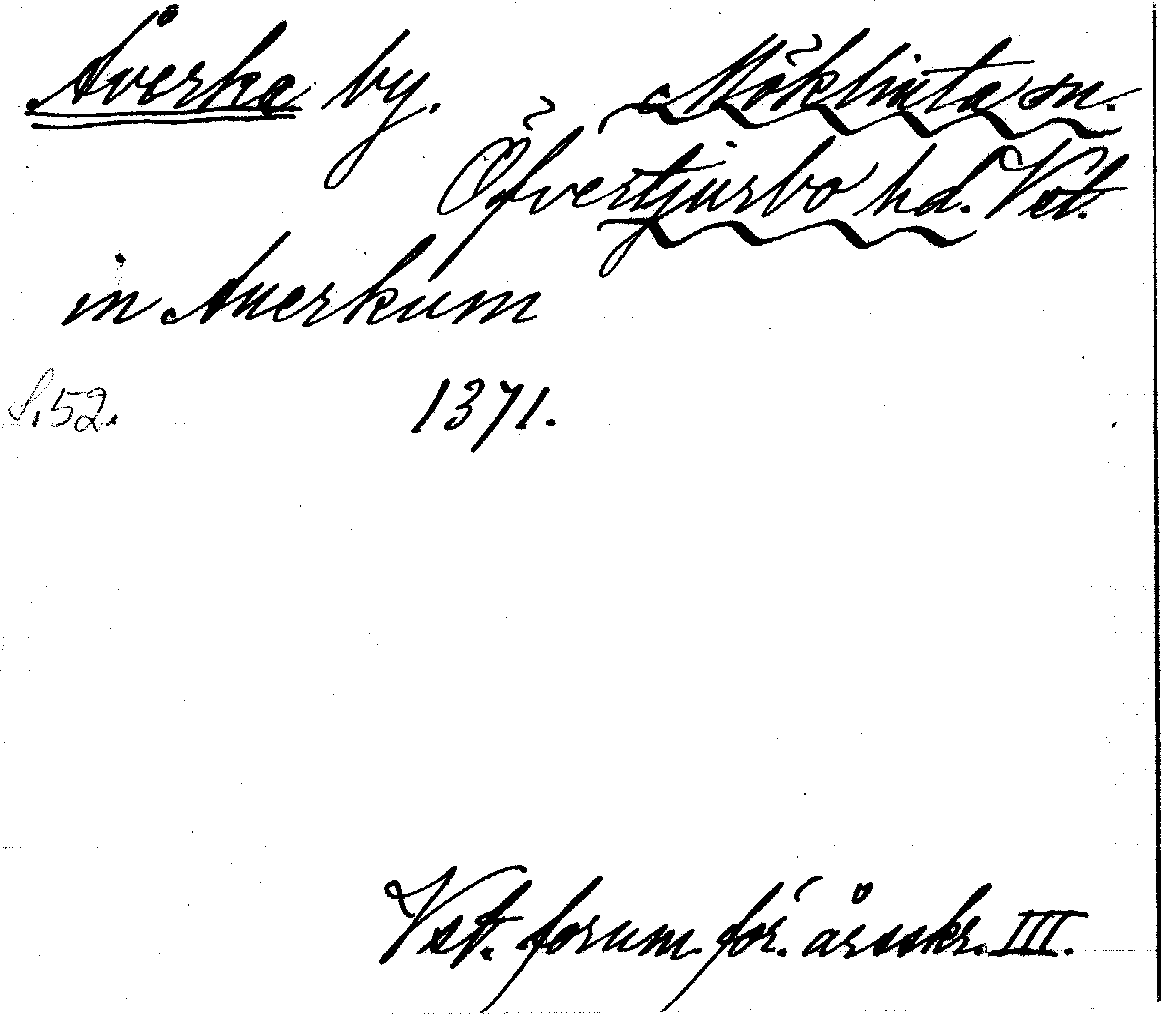 Åverka by. Möklinta sn.
Öfvertjurbo hd. Vst.
in Auerkum
S. 52. 1371.
Vst. fornm. för. årsskr. III.